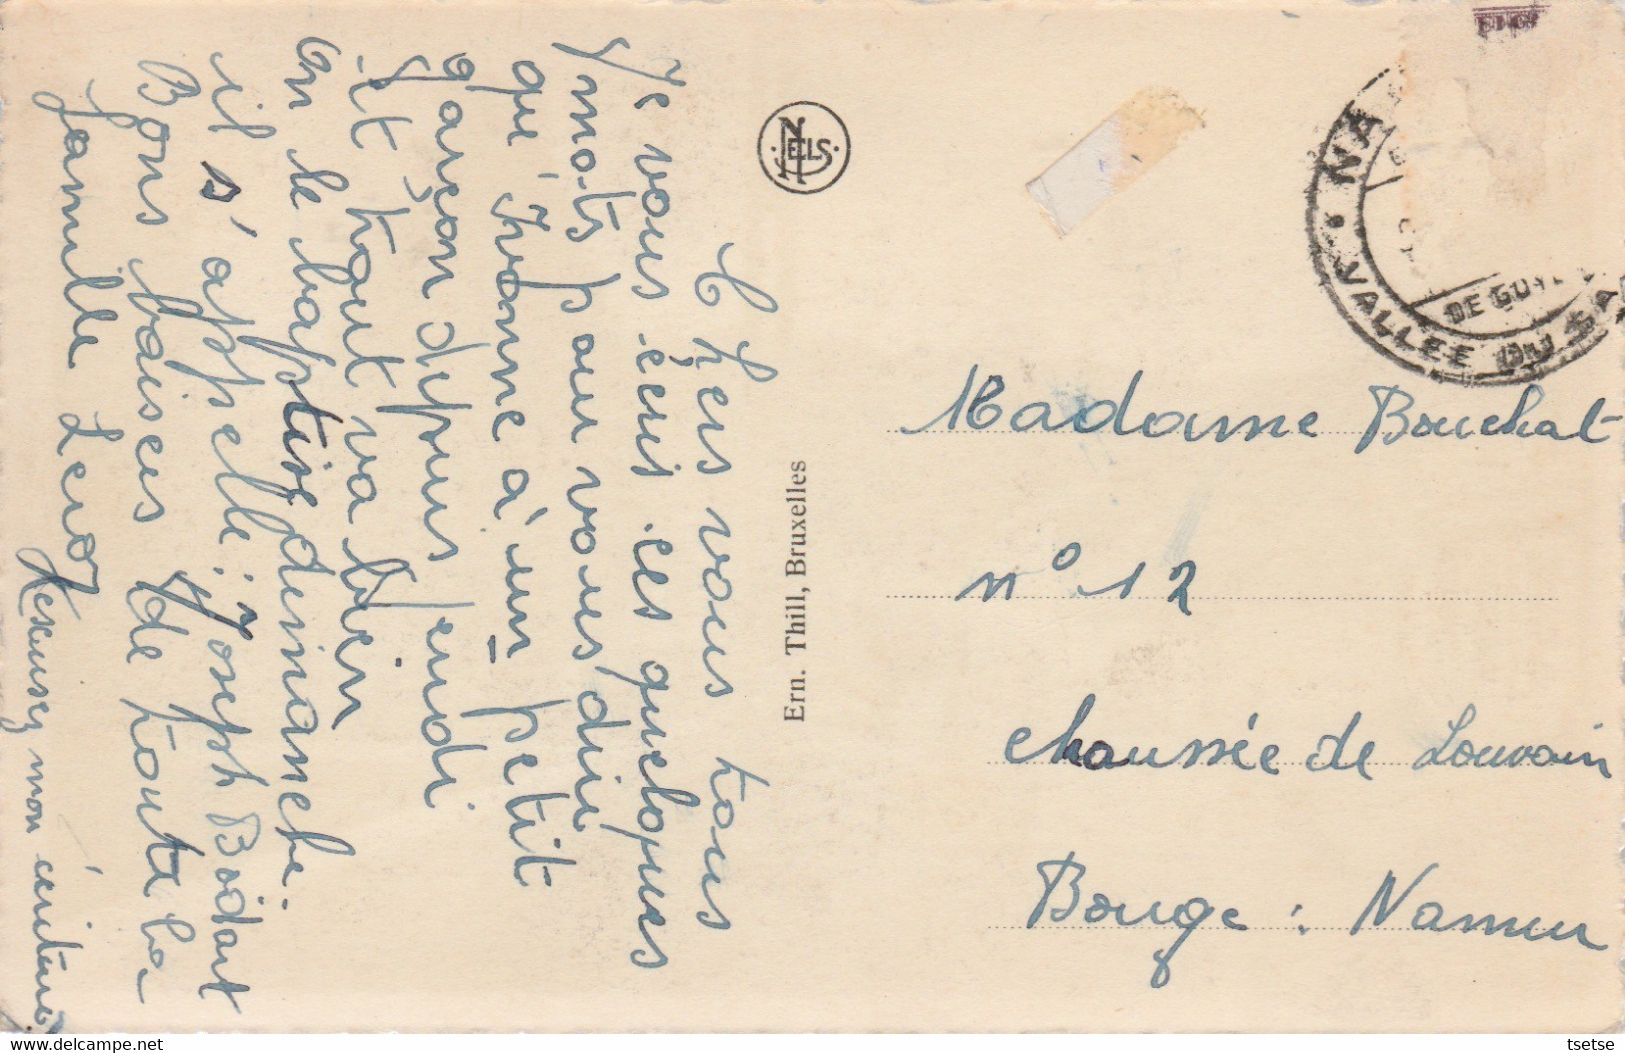 Chers vous tous
Je vous écris ces quelques
mots pour vous dire
que Ivonne a un petit
garçon depuis jeudi
et tout va bien
On le baptise dimanche.
il s'appelle: Joseph Bodart
Bons baises de toute la
famille
Excusez mon écriture
NELS
Ern. Thill, Bruxelles
VALLEE DU
Madame Bouchat
n° 12
chaussée de Louvain
Bouge: Namur
tsetse
www.delcampe.net